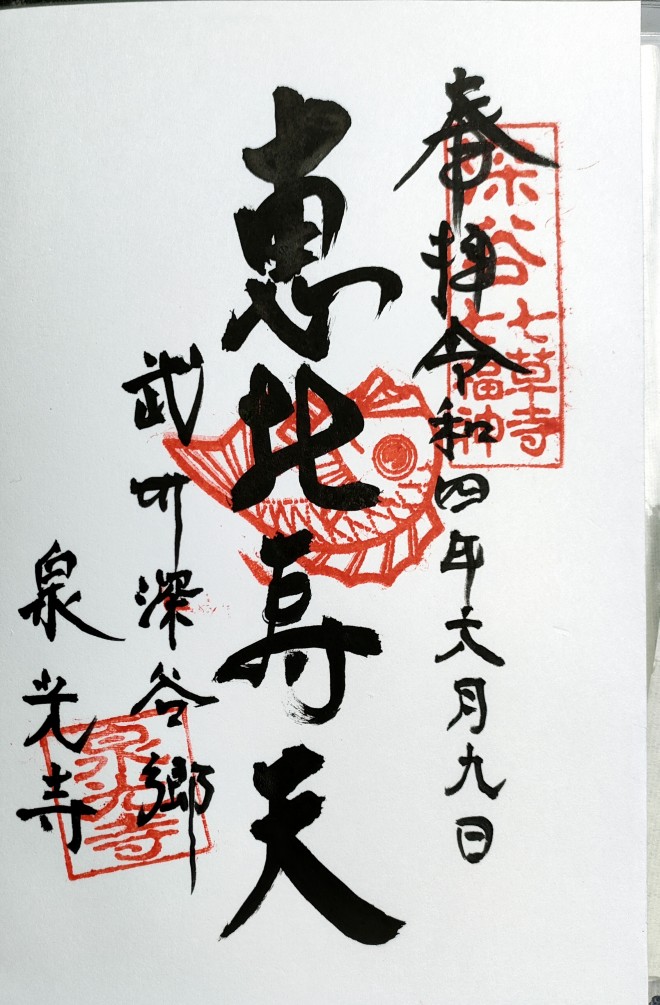 奉拝令和四年六月九日
深谷七草寺
七福神
恵比寿天
武州深谷郷
泉光寺
泉光寺